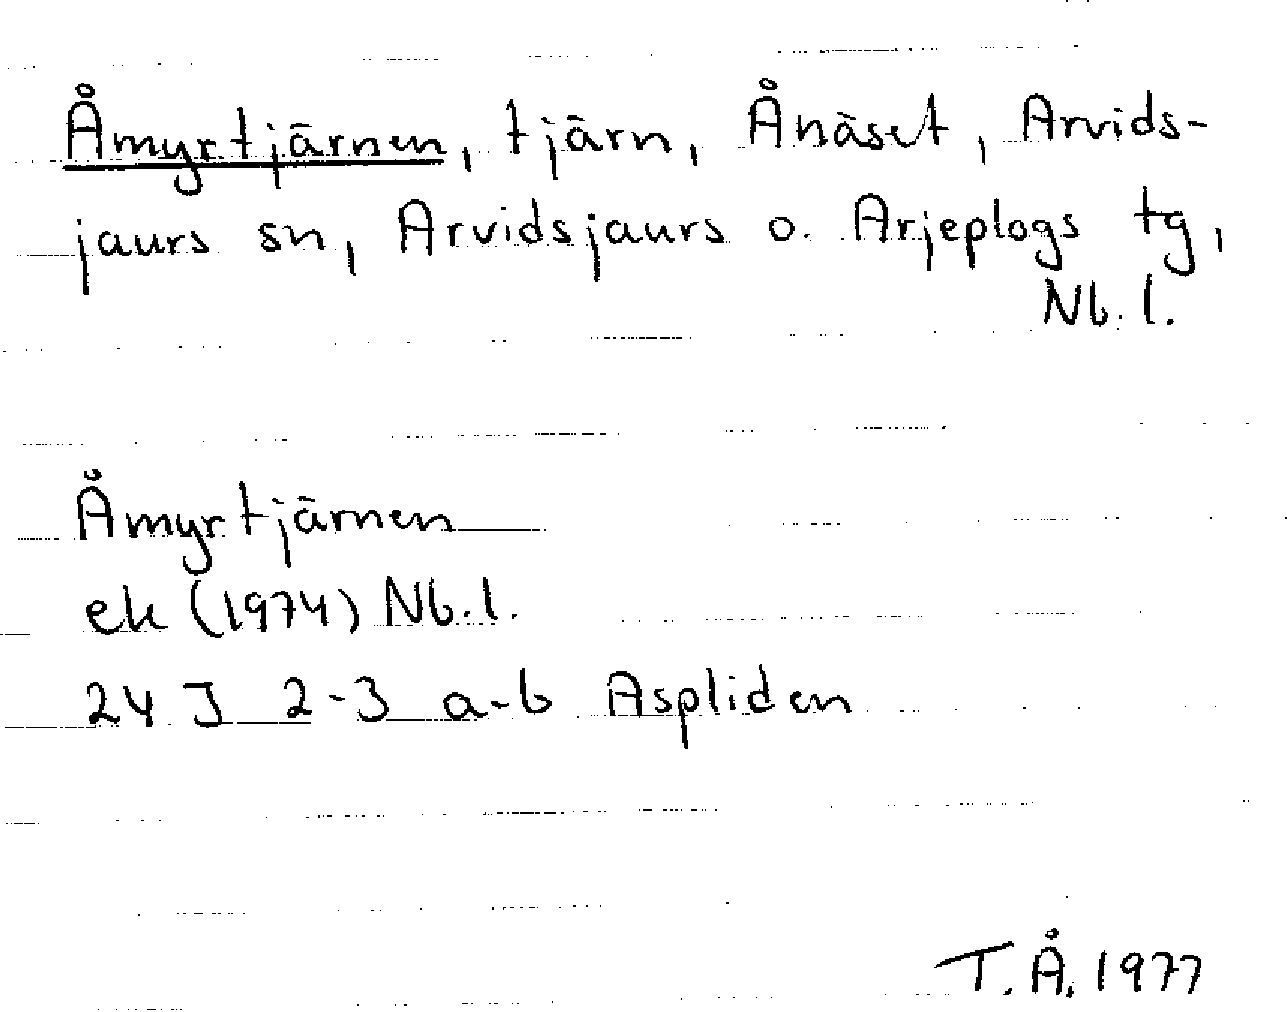 Åmyrtjärnen, tjärn, Ånäset, Arvids-
jaurs sn, Arvidsjaurs o. Arjeplogs tg,
Nb. l.
Åmyrtjärnen
ek (1974) Nb. l.
24 J 2-3 a-b Aspliden
T. Å. 1977